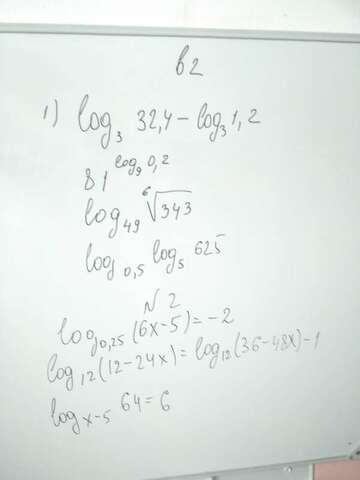 в2
1) log₃ 32,4 – log₃ 1,2
81^(log₉ 0,2)
log₄₉ ⁶√343
log₀,₅ log₅ 625
N 2
log₀,₂₅ (6x-5) = -2
log₁₂ (12-24x) = log₁₂ (36-48x) - 1
logₓ₋₅ 64 = 6